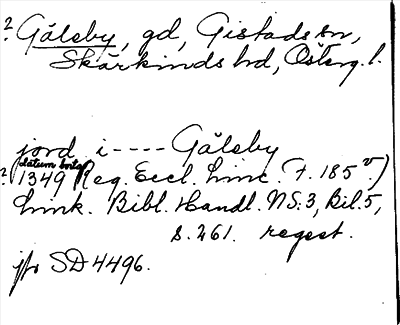 ? Gälsby, gd, Gistads sn,
Skärkinds hd, Österg. l.
jord i ---- Gälsby
datum borta
? (1349 Reg. Eccl. Linc. F. 185 v.)
Link. Bibl. Handl. NS.3, Bil.5,
S. 261. regest.
jfr SD 4496.